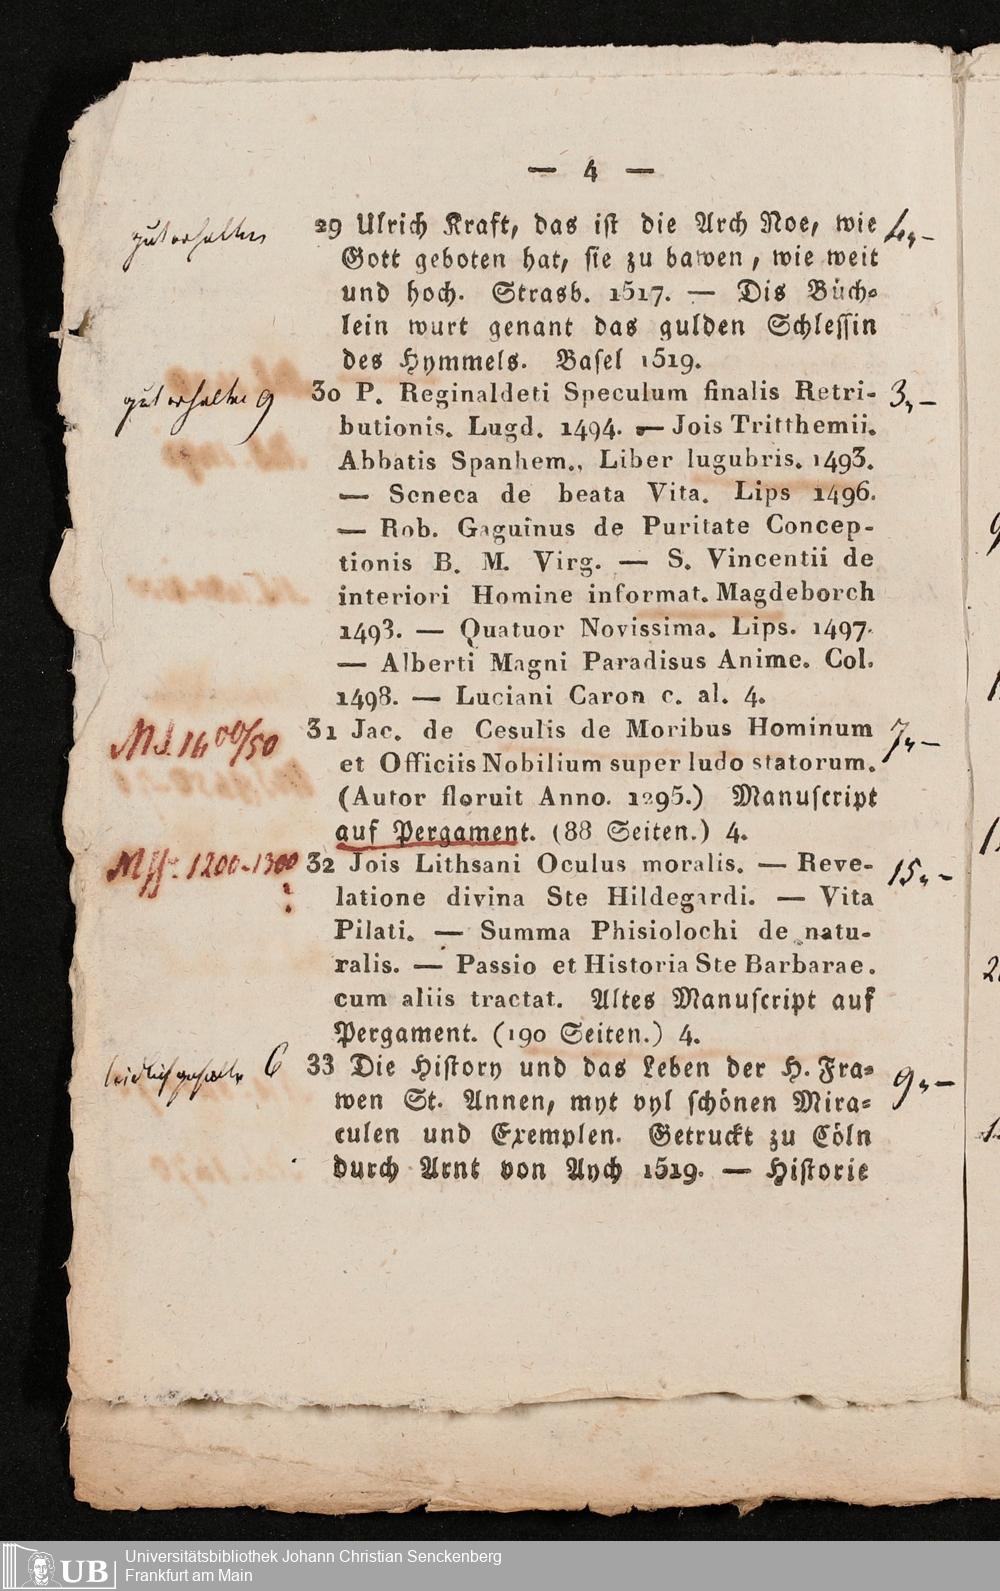 — 4 —
gut erhalten 29 Ulrich Kraft, das ist die Arch Noe, wie 4,,–
Gott geboten hat, sie zu bawen, wie weit
und hoch. Strasb. 1517. — Dis Büch-
lein wurt genant das gulden Schlessin
des Hymmels. Basel 1519.
gut erhalten 9 30 P. Reginaldeti Speculum finalis Retri- 3,,–
butionis. Lugd. 1494. — Jois Tritthemii.
Abbatis Spanhem., Liber lugubris. 1493.
— Seneca de beata Vita. Lips 1496.
— Rob. Gaguinus de Puritate Concep-
tionis B. M. Virg. — S. Vincentii de
interiori Homine informat. Magdeborch
1493. — Quatuor Novissima. Lips. 1497.
— Alberti Magni Paradisus Anime. Col.
1498. — Luciani Caron c. al. 4.
MS. 1400/50 31 Jac. de Cesulis de Moribus Hominum 7,,–
et Officiis Nobilium super ludo statorum.
(Autor floruit Anno. 1295.) Manuscript
auf Pergament. (88 Seiten.) 4.
Mss. 1200-1300 32 Jois Lithsani Oculus moralis. — Reve- 15,,–
? latione divina Ste Hildegardi. — Vita
Pilati. — Summa Phisiolochi de natu-
ralis. — Passio et Historia Ste Barbarae.
cum aliis tractat. Altes Manuscript auf
Pergament. (190 Seiten.) 4.
6 33 Die History und das Leben der H. Fra- 9,,–
wen St. Annen, myt vyl schönen Mira-
culen und Exemplen. Getruckt zu Cöln
durch Arnt von Aych 1519. — Historie
UB Universitätsbibliothek Johann Christian Senckenberg
Frankfurt am Main